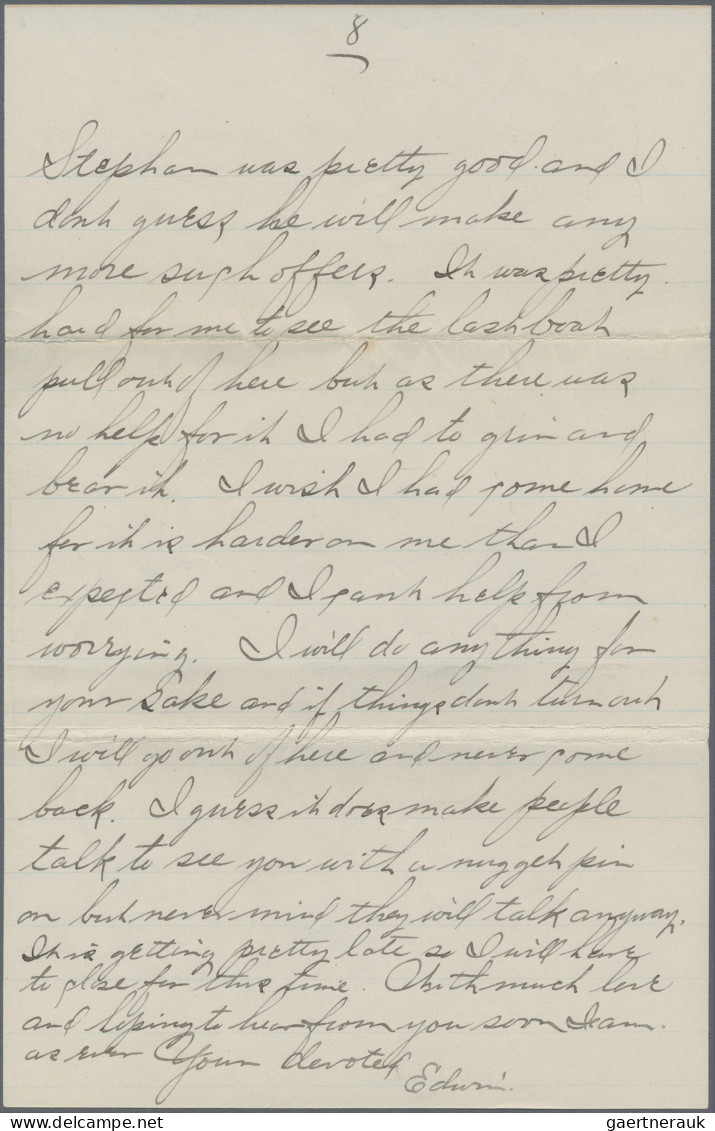 8
Stephan was pretty good and I
dont guess he will make any
more such offers. It was pretty
hard for me to see the last boat
pull out of here but as there was
no help for it I had to grin and
bear it. I wish I had come home
for it is harder on me than I
expected and I cant help from
worrying. I will do anything for
your sake and if things dont turn out
I will go out of here and never come
back. I guess it does make people
talk to see you with a nugget pin
on but never mind they will talk anyway.
It is getting pretty late so I will have
to close for this time. With much love
and hoping to hear from you soon I am.
as ever Your devoted
Edwin.
gaertnerauk